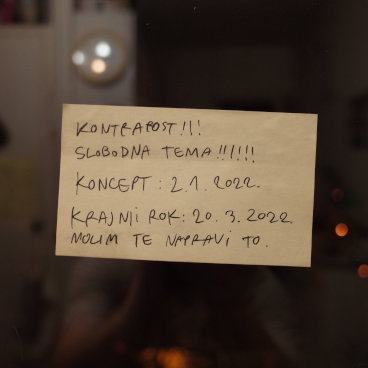 KONTRAPOST!!!
SLOBODNA TEMA!!!!!!
KONCEPT: 2.1.2022.
KRAJNJI ROK: 20.3.2022.
MOLIM TE NAPRAVI TO.